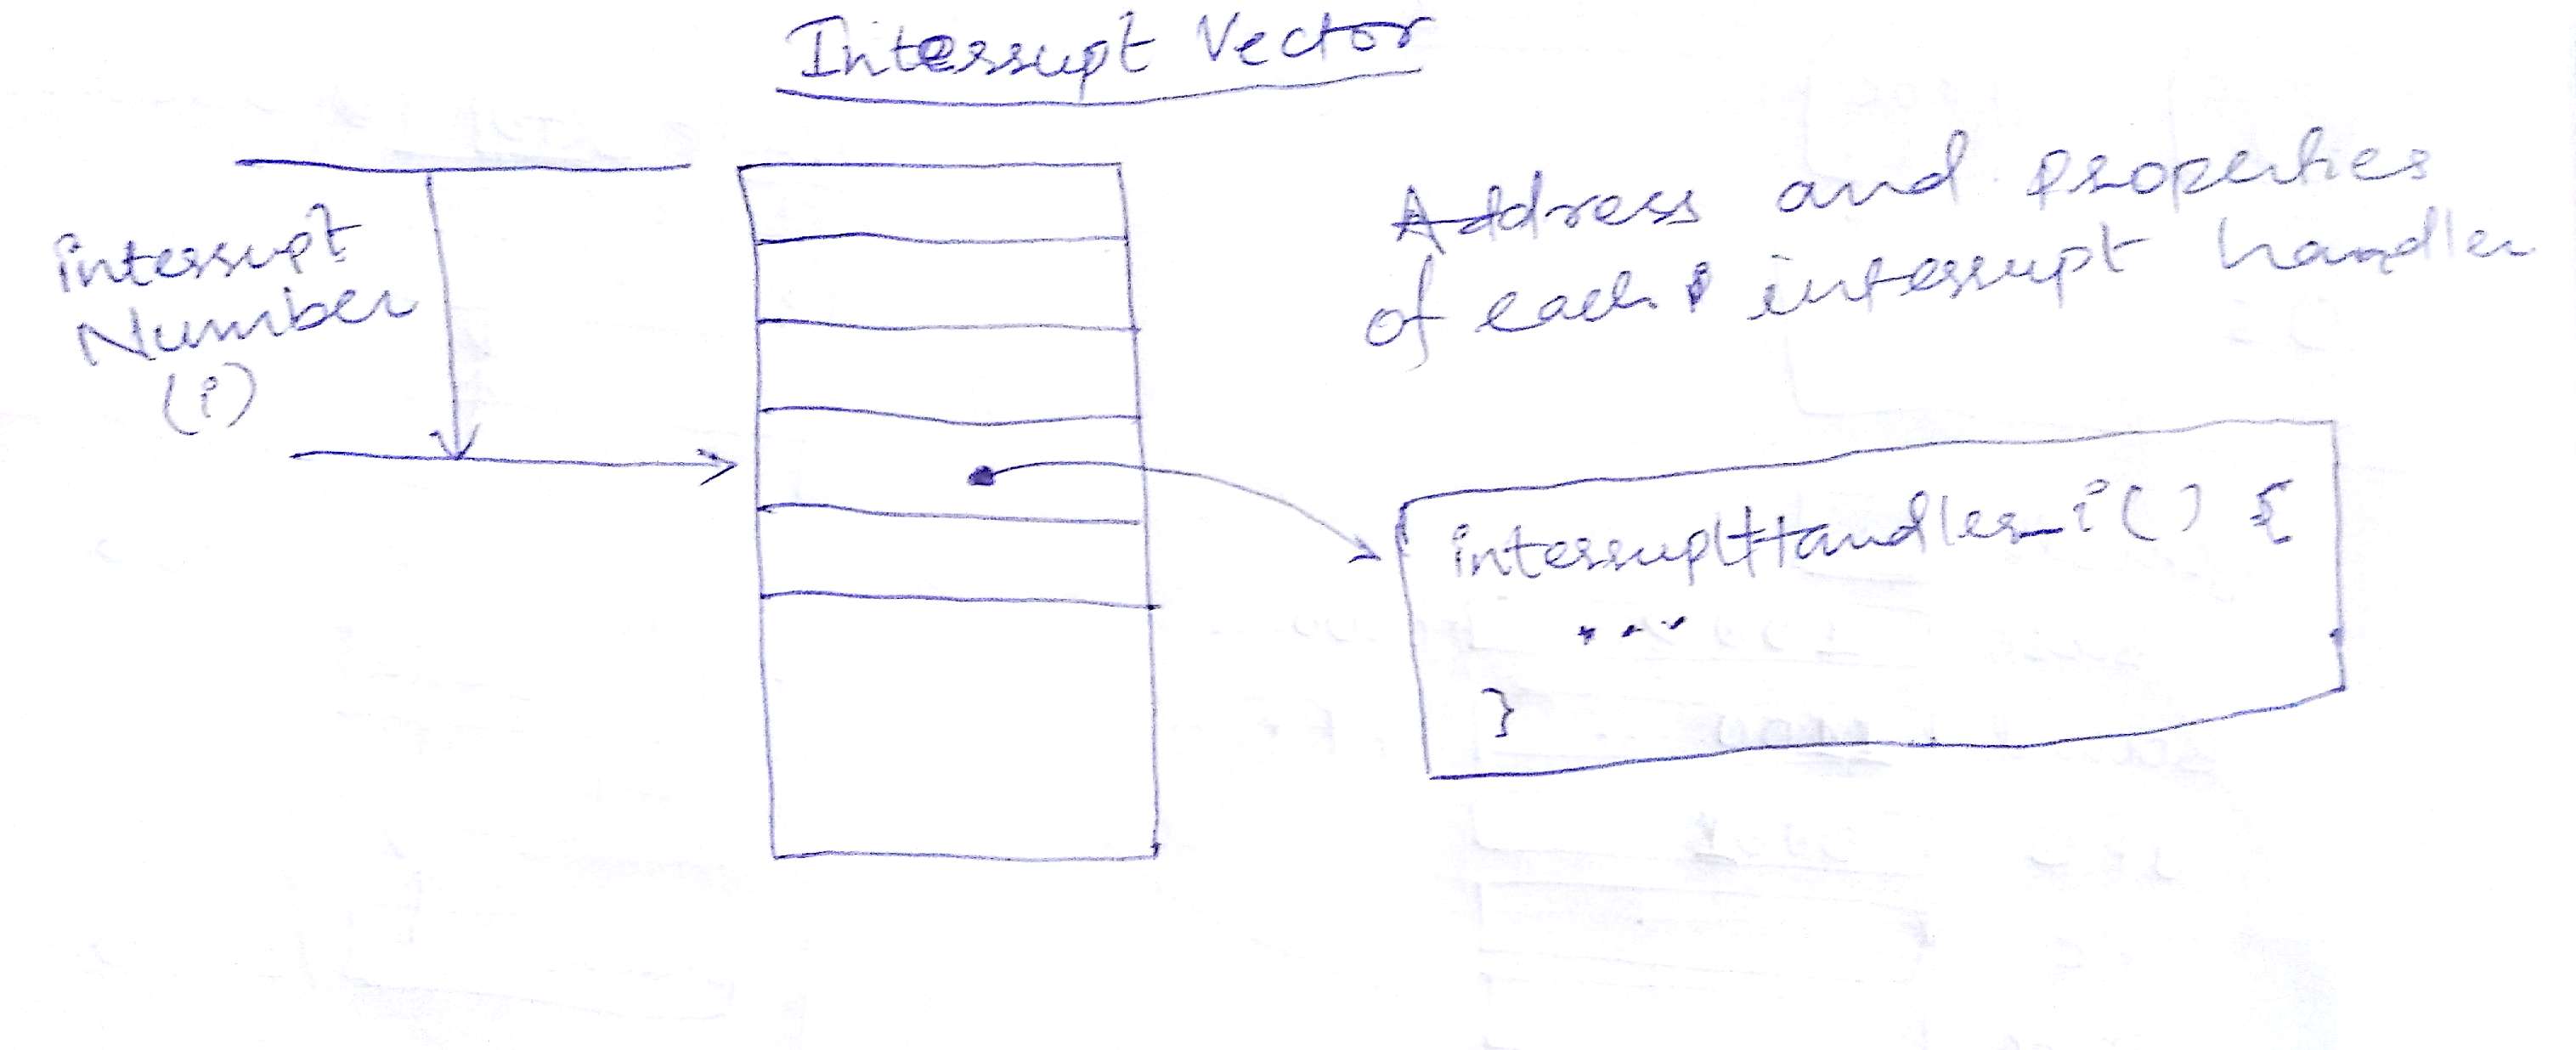 Interrupt Vector
interrupt
Number
(i)
Address and properties
of each interrupt handler
interruptHandler_i() {
...
}